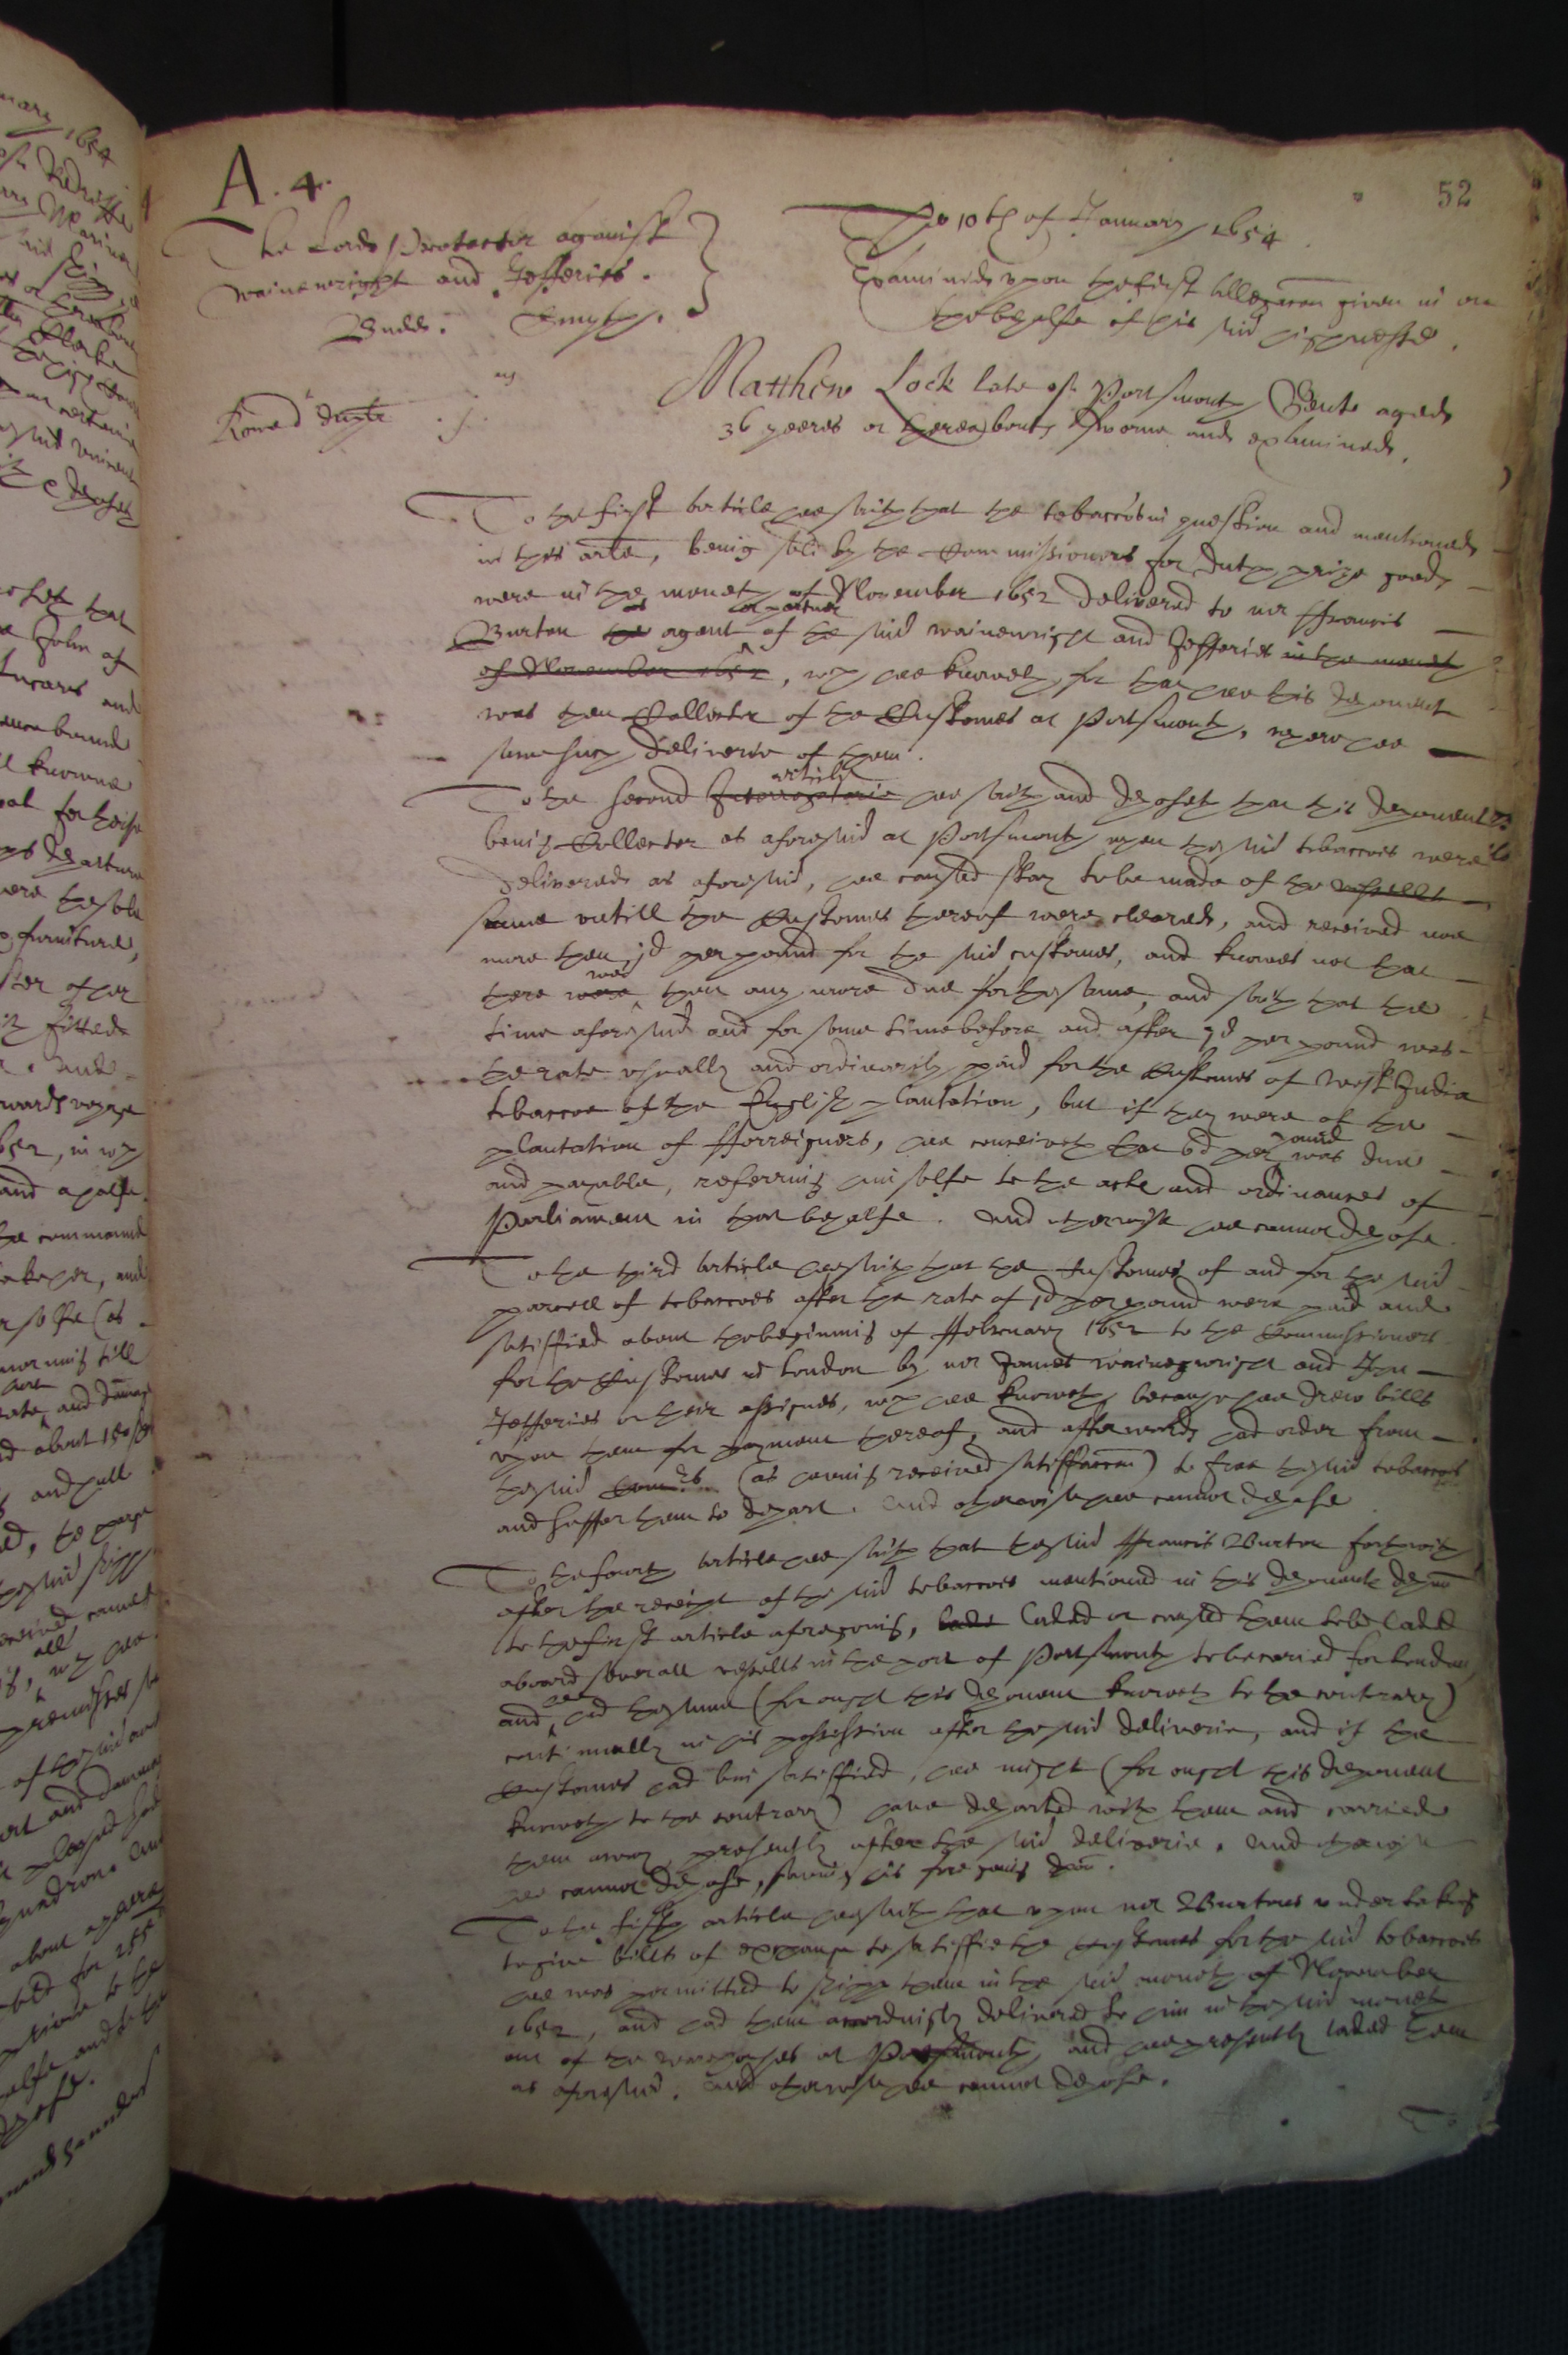 A. 4.
52
The Lord Protector against
Wainewright and Jefferies.
Budd. Smyth.
The 10th of January 1654.
Examined upon the first allegacon given in on
the behalfe of his said highnesse.
Matthew Lock late of Portsmouth Gent aged
36 yeeres or thereabouts sworne and examined.
To the first article hee saith that the tobaccoes in question and mentioned
in this arlte, being sold by the Commissioners for Dutch prize goods
were in the moneth of November 1652 delivered to mr ffrancis
as or partner
Burton the agent of the said Wainewright and Jefferies in the moneth
of November 1652, wch hee knoweth, for that hee this deponent
was then Collector of the Customes at Portsmouth, where hee
saw such deliverie of them.
article
To the second Interrogatorie hee saith and deposeth that this deponent
being Collector as aforesaid at Portsmouth when the said tobaccoes were
delivered as aforesaid, hee caused stay to be made of the vessells
same untill the Customes thereof were cleared, and received noe
more then jd per pound for the said customes, and knowes not that
was
there were then any more due for the same, and saith that the
time aforesaid and for some time before and after jd per pound was
the rate usually and ordinarily paid for the Customes of West India
tobaccoe of the English plantation, but if they were of the
pound
plantation of fforreigners, hee conceiveth that 6d per was due
and payable, referring himselfe to the acte and ordinances of
Parliament in that behalfe. And otherwise hee cannot depose.
To the third article hee saith that the Customes of and for the said
parcell of tobaccoes after the rate of jd per pound were paid and
satisfied about the beginning of ffebruary 1652 to the Commissioners
for the Customes at London by mr James Wainewright and
Jefferies or their assignes, wch hee knoweth because hee drew bills
upon them for payment thereof, and afterwards had order from
the said Comrs (as having received satisfaccon) to free the said tobaccoes
and suffer them to depart. And otherwise hee cannot depose
To the fourth article hee saith that the said ffrancis Burton forthwith
after the receipt of the said tobaccoes mentioned in this deponents
to the first article aforegoing, lade laded or caused them to be laded
aboard severall vessells in the port of Portsmouth to be caried for London
hee
and had the same (for ought this deponent knoweth to the contrary)
continually in his possession after the said deliverie, and if the
Customes had bin satisfied, hee might (for ought this deponent
knoweth to the contrary) have departed with them and carried
them away presently after the said deliverie. And otherwise
hee cannot depose, saving his foregoing
To the fifth article hee saith that upon mr Burtons undertaking
to give bills of exchange to satisfie the customes for the said tobaccoes
hee was permitted to shipp them in the said moneth of November
1652, and had them accordingly delivered to him in the said moneth
out of the warehouses at Portsmouth, and hee presently laded them
as aforesaid. And otherwise hee cannot depose.
To